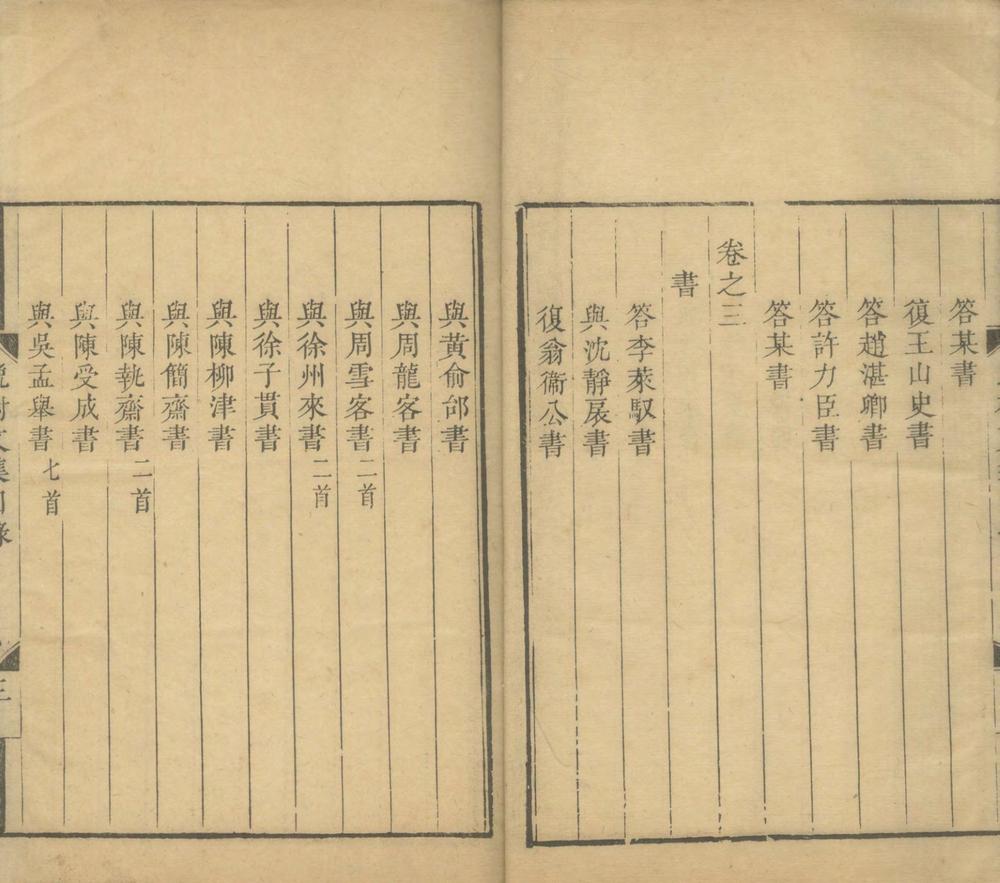 答某書
復王山史書
答趙湛卿書
答許力臣書
答某書
卷之三
書
答李萊馭書
與沈靜扆書
復翁衛公書
與黃俞邰書
與周龍客書
與周雪客書二首
與徐州來書二首
與陳柳津書
與徐子貫書
與陳簡齋書
與陳執齋書二首
與陳受成書
與吳孟舉書七首
晚村文集目錄
三